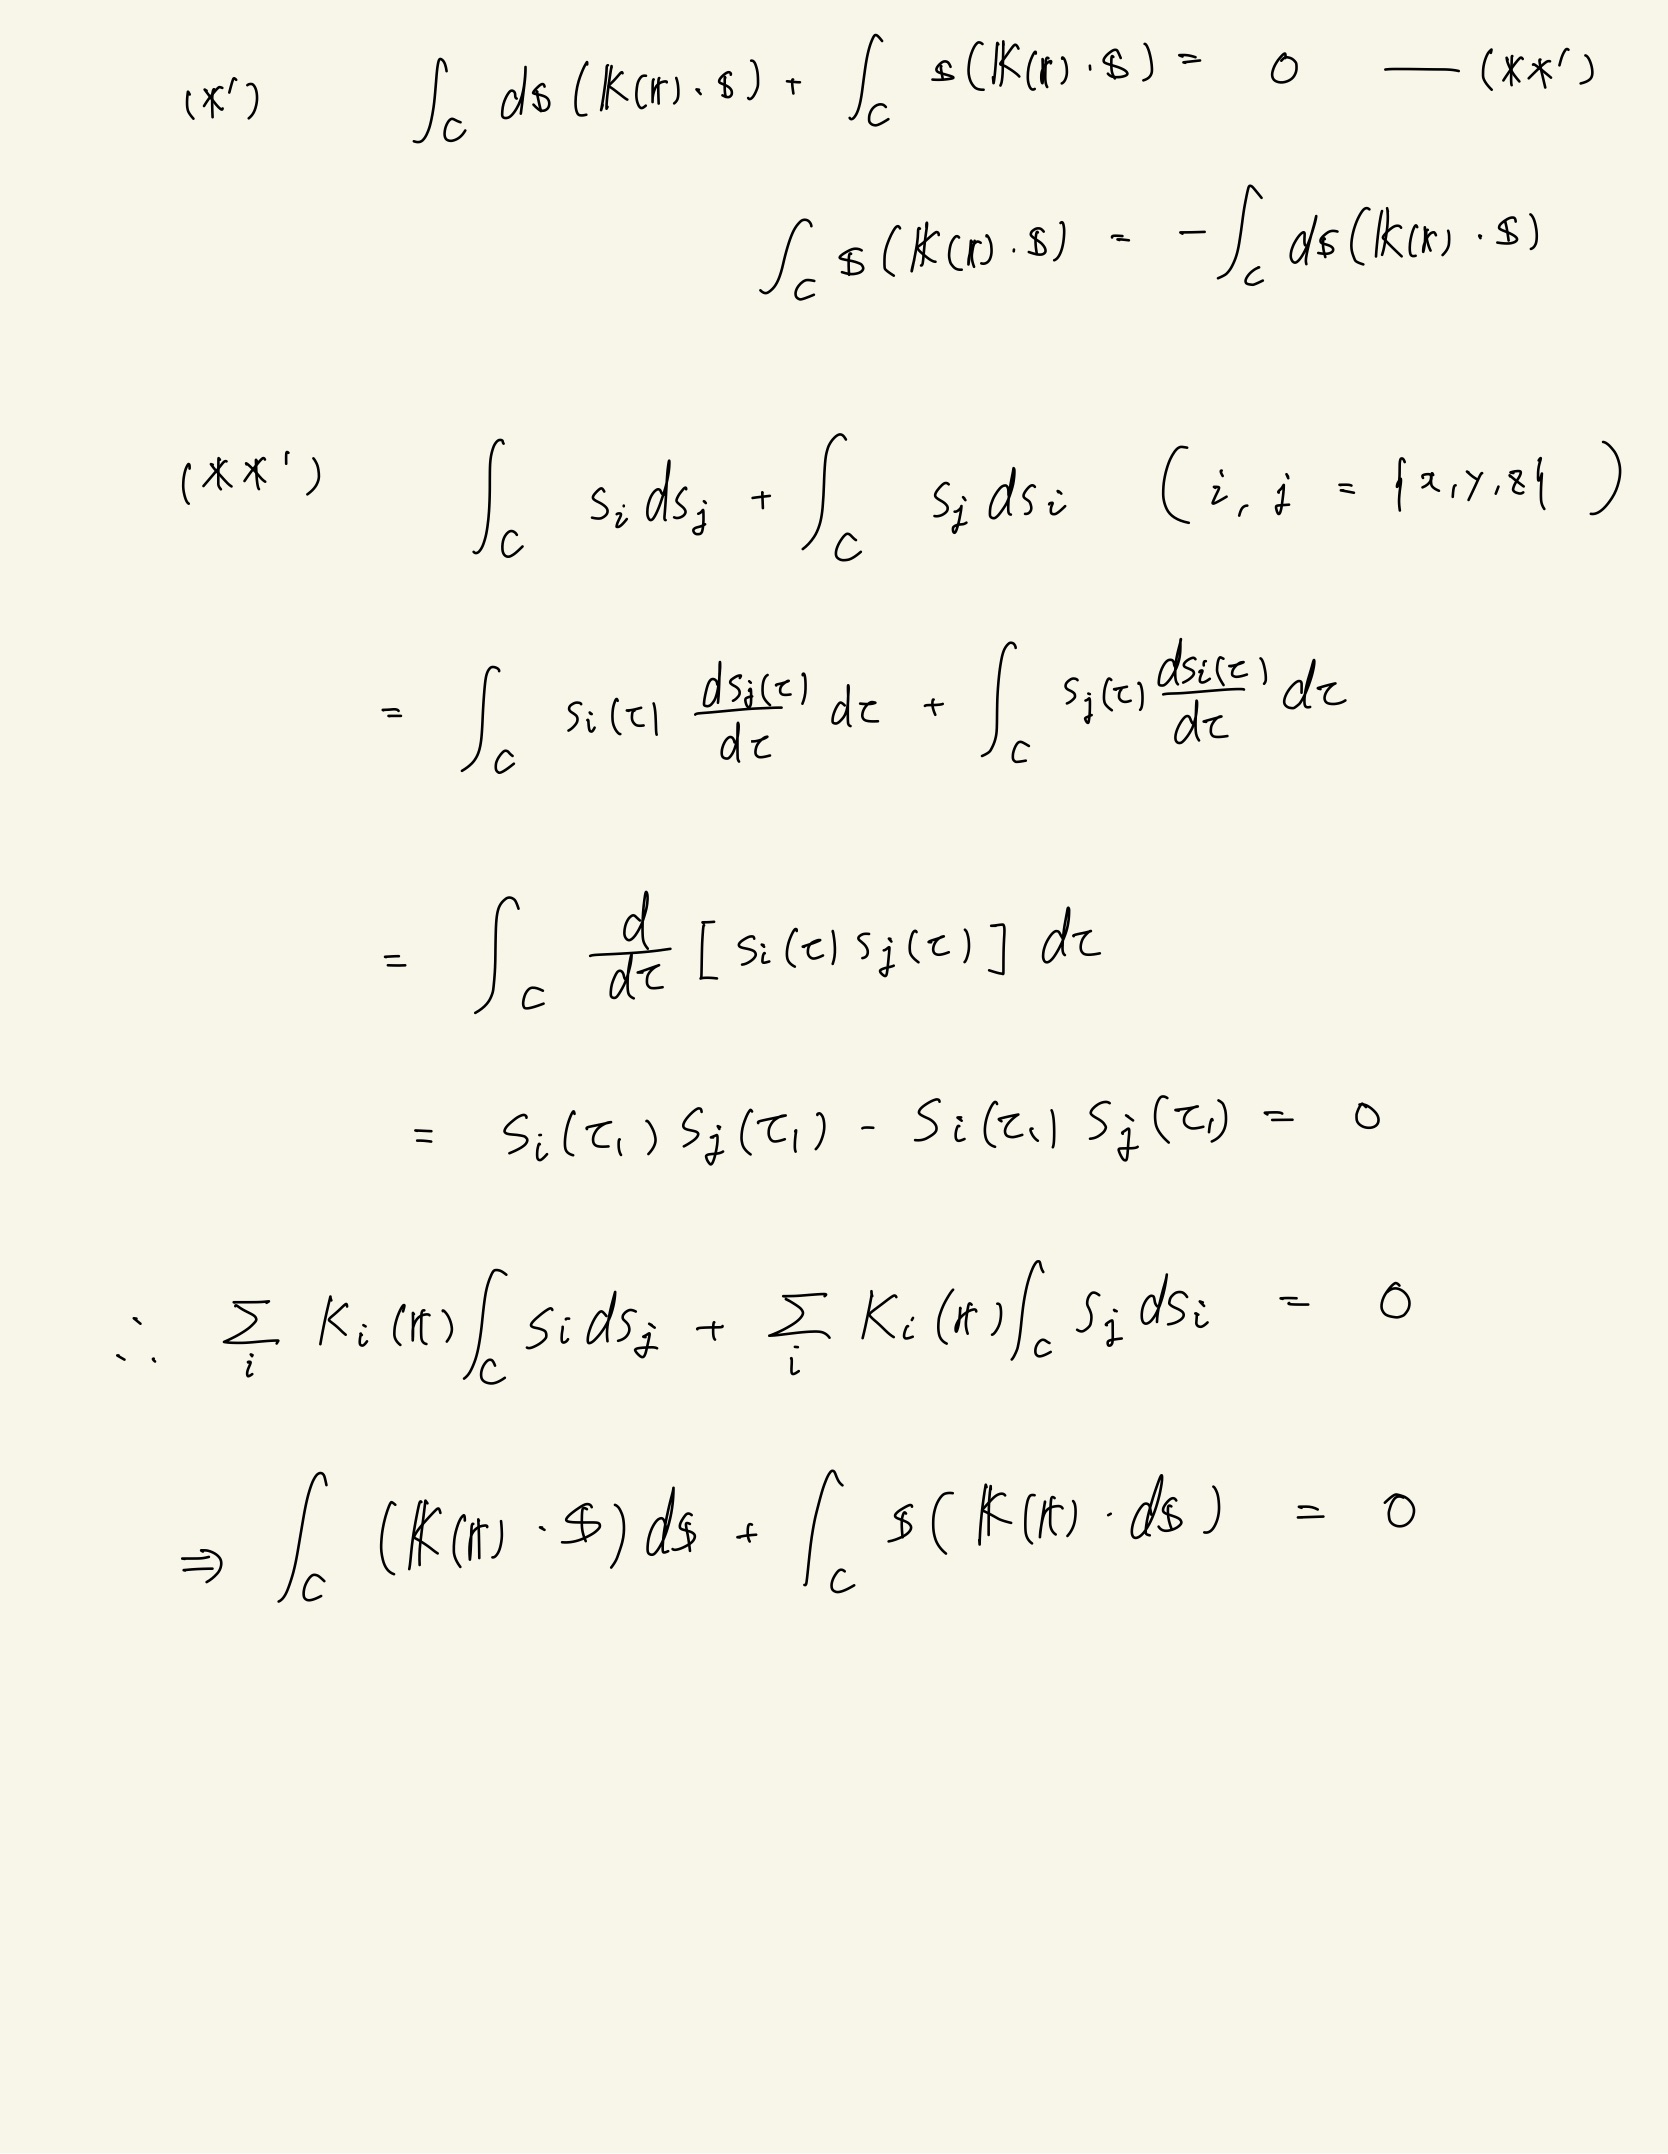 (*') ∫_C d𝕤 (𝕂(𝕣)·𝕤) + ∫_C 𝕤(𝕂(𝕣)·𝕤) = 0 — (**')
∫_C 𝕤(𝕂(𝕣)·𝕤) = -∫_C d𝕤(𝕂(𝕣)·𝕤)
(**') ∫_C s_i ds_j + ∫_C s_j ds_i (i, j = {x, y, z})
= ∫_C s_i(τ) ds_j(τ)/dτ dτ + ∫_C s_j(τ) ds_i(τ)/dτ dτ
= ∫_C d/dτ [s_i(τ) s_j(τ)] dτ
= s_i(τ_1) s_j(τ_1) - s_i(τ_1) s_j(τ_1) = 0
∴ Σ_i K_i(𝕣)∫_C s_i ds_j + Σ_i K_i(𝕣)∫_C s_j ds_i = 0
⇒ ∫_C (𝕂(𝕣)·𝕤) d𝕤 + ∫_C 𝕤(𝕂(𝕣)·d𝕤) = 0